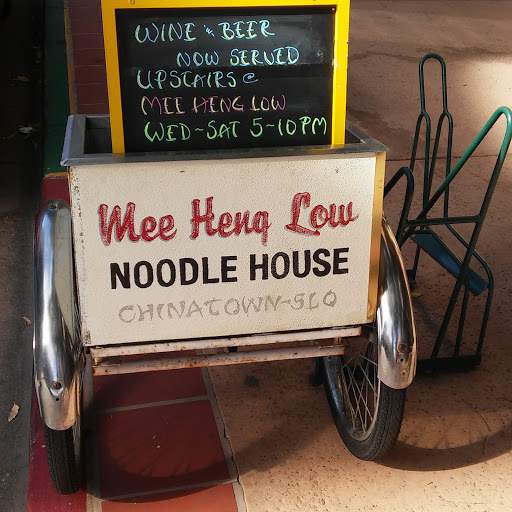 WINE & BEER
NOW SERVED
UPSTAIRS @
MEE HENG LOW
WED~SAT 5-10PM
Mee Heng Low
NOODLE HOUSE
CHINATOWN-SLO